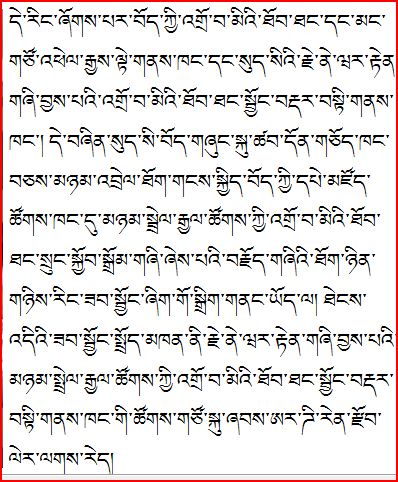 དེ་རིང་ཞོགས་པར་བོད་ཀྱི་འགྲོ་བ་མིའི་ཐོབ་ཐང་དང་མང་
གཙོ་འཕེལ་རྒྱས་ལྟེ་གནས་ཁང་དང་སུད་སིའི་རྗེ་ནེ་ཝར་རྟེན་
གཞི་བྱས་པའི་འགྲོ་བ་མིའི་ཐོབ་ཐང་སྦྱོང་བརྡར་བསྟི་གནས་
ཁང་། དེ་བཞིན་སུད་སི་བོད་གཞུང་སྐུ་ཚབ་དོན་གཅོད་ཁང་
བཅས་མཉམ་འབྲེལ་ཐོག་གངས་སྐྱིད་བོད་ཀྱི་དཔེ་མཛོད་
ཚོགས་ཁང་དུ་མཉམ་སྦྲེལ་རྒྱལ་ཚོགས་ཀྱི་འགྲོ་བ་མིའི་ཐོབ་
ཐང་སྲུང་སྐྱོབ་སྒྲོམ་གཞི་ཞེས་པའི་བརྗོད་གཞིའི་ཐོག་ཉིན་
གཉིས་རིང་ཟབ་སྦྱོང་ཞིག་གོ་སྒྲིག་གནང་ཡོད་ལ། ཐེངས་
འདིའི་ཟབ་སྦྱོང་སྤྲོད་མཁན་ནི་རྗེ་ནེ་ཝར་རྟེན་གཞི་བྱས་པའི་
མཉམ་སྦྲེལ་རྒྱལ་ཚོགས་ཀྱི་འགྲོ་བ་མིའི་ཐོབ་ཐང་སྦྱོང་བརྡར་
བསྟི་གནས་ཁང་གི་ཚོགས་གཙོ་སྐུ་ཞབས་ཨར་ཌི་རེན་རྫོབ་
ལེར་ལགས་རེད།